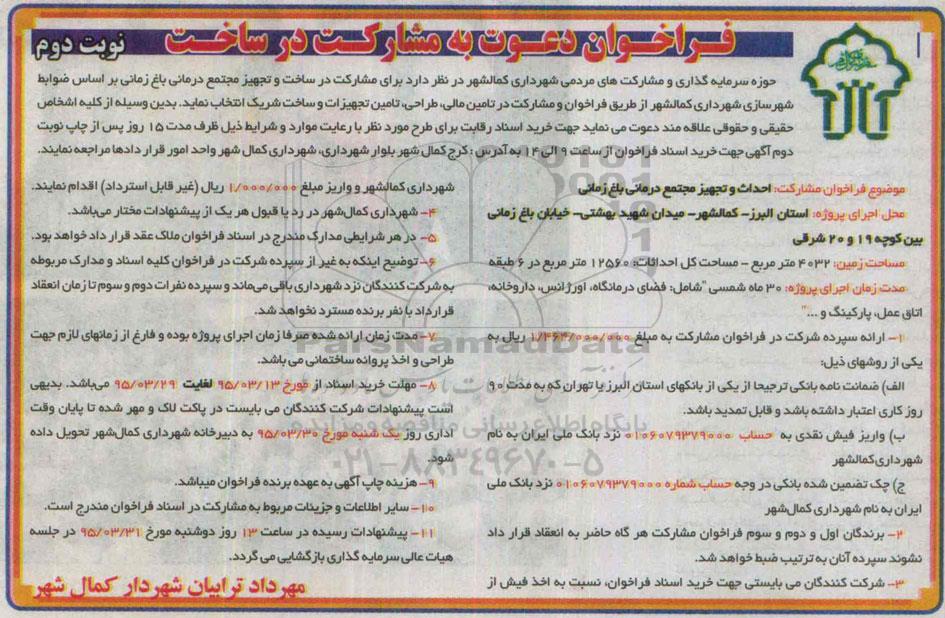 فراخوان دعوت به مشارکت در ساخت
نوبت دوم
حوزه سرمایه گذاری و مشارکت های مردمی شهرداری کمالشهر در نظر دارد برای مشارکت در ساخت و تجهیز مجتمع درمانی باغ زمانی بر اساس ضوابط
شهرسازی شهرداری کمالشهر از طریق فراخوان و مشارکت در تامین مالی، طراحی، تامین تجهیزات و ساخت شریک انتخاب نماید. بدین وسیله از کلیه اشخاص
حقیقی و حقوقی علاقه مند دعوت می نماید جهت خرید اسناد رقابت برای طرح مورد نظر با رعایت موارد و شرایط ذیل ظرف مدت ۱۵ روز پس از چاپ نوبت
دوم آگهی جهت خرید اسناد فراخوان از ساعت ۹ الی ۱۴ به آدرس : کرج کمال شهر بلوار شهرداری، شهرداری کمال شهر واحد امور قرار دادها مراجعه نمایند.
موضوع فراخوان مشارکت: احداث و تجهیز مجتمع درمانی باغ زمانی
محل اجرای پروژه: استان البرز- کمالشهر- میدان شهید بهشتی- خیابان باغ زمانی
بین کوچه ۱۹ و ۲۰ شرقی
مساحت زمین: ۴۰۳۲ متر مربع - مساحت کل احداثات: ۱۲۵۶۰ متر مربع در ۶ طبقه
مدت زمان اجرای پروژه: ۳۰ ماه شمسی "شامل: فضای درمانگاه، اورژانس، داروخانه،
اتاق عمل، پارکینگ و ..."
۱- ارائه سپرده شرکت در فراخوان مشارکت به مبلغ ۱/۴۶۴/۰۰۰/۰۰۰ ریال به
یکی از روشهای ذیل:
الف) ضمانت نامه بانکی ترجیحا از یکی از بانکهای استان البرز یا تهران که به مدت ۹۰
روز کاری اعتبار داشته باشد و قابل تمدید باشد.
ب) واریز فیش نقدی به حساب ۰۱۰۶۰۷۹۳۷۹۰۰۰ نزد بانک ملی ایران به نام
شهرداری کمالشهر
ج) چک تضمین شده بانکی در وجه حساب شماره ۰۱۰۶۰۷۹۳۷۹۰۰۰ نزد بانک ملی
ایران به نام شهرداری کمال شهر
۲- برندگان اول و دوم و سوم فراخوان مشارکت هر گاه حاضر به انعقاد قرار داد
نشوند سپرده آنان به ترتیب ضبط خواهد شد.
۳- شرکت کنندگان می بایستی جهت خرید اسناد فراخوان، نسبت به اخذ فیش از
شهرداری کمالشهر و واریز مبلغ ۱/۰۰۰/۰۰۰ ریال (غیر قابل استرداد) اقدام نمایند.
۴- شهرداری کمال‌شهر در رد یا قبول هر یک از پیشنهادات مختار می‌باشد.
۵- در هر شرایطی مدارک مندرج در اسناد فراخوان ملاک عقد قرار داد خواهد بود.
۶- توضیح اینکه به غیر از سپرده شرکت در فراخوان کلیه اسناد و مدارک مربوطه
به شرکت کنندگان نزد شهرداری باقی می‌ماند و سپرده نفرات دوم و سوم تا زمان انعقاد
قرارداد با نفر برنده مسترد نخواهد شد.
۷- مدت زمان ارائه شده صرفا زمان اجرای پروژه بوده و فارغ از زمانهای لازم جهت
طراحی و اخذ پروانه ساختمانی می باشد.
۸- مهلت خرید اسناد از مورخ ۹۵/۰۳/۱۳ لغایت ۹۵/۰۳/۲۹ می‌باشد. بدیهی
است پیشنهادات شرکت کنندگان می بایست در پاکت لاک و مهر شده تا پایان وقت
اداری روز یک شنبه مورخ ۹۵/۰۳/۳۰ به دبیرخانه شهرداری کمال‌شهر تحویل داده
شود.
۹- هزینه چاپ آگهی به عهده برنده فراخوان میباشد.
۱۰- سایر اطلاعات و جزییات مربوط به مشارکت در اسناد فراخوان مندرج است.
۱۱- پیشنهادات رسیده در ساعت ۱۳ روز دوشنبه مورخ ۹۵/۰۳/۳۱ در جلسه
هیات عالی سرمایه گذاری بازگشایی می گردد.
مهرداد ترابیان شهردار کمال شهر
ParsNamadData
پایگاه اطلاع رسانی مناقصه و مزایده
۰۲۱-۸۸۳۴۹۶۷۰-۵